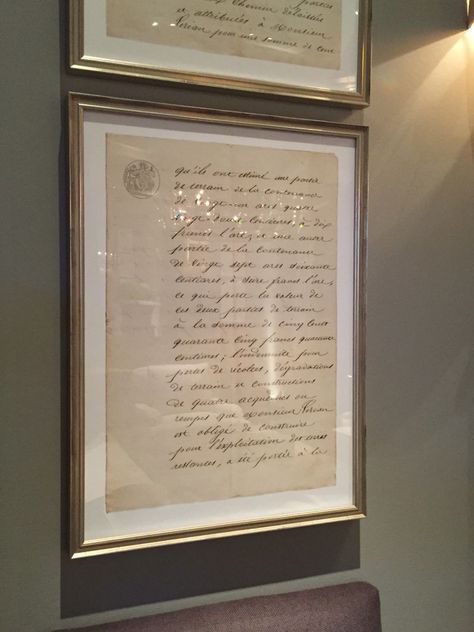 vieux Chemin délaissés
et attribuées à Monsieur
Perian pour une somme de cent
qu'ils ont estimé une partie
de terrain de la contenance
de vingt-un ares quatre
vingt-douze centiares, à dix
francs l'are, et une autre
partie de la contenance
de vingt sept ares soixante
centiares, à douze francs l'are,
ce que porte la valeur de
ces deux parties de terrain
à la somme de cinq cent
quarante cinq francs quarante
centimes; l'indemnité pour
pertes de récoltes, dégradations
de terrain et constructions
de quatre acqueducs ou
rempes que Monsieur Perian
est obligé de construire
pour l'exploitation des terres
restantes, a été portée à la